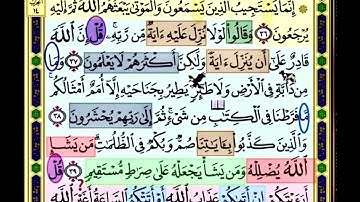 إِنَّمَا يَسْتَجِيبُ الَّذِينَ يَسْمَعُونَ وَالْمَوْتَىٰ يَبْعَثُهُمُ اللَّهُ ثُمَّ إِلَيْهِ
يُرْجَعُونَ ٣٦ وَقَالُوا لَوْلَا نُزِّلَ عَلَيْهِ ءَايَةٌ مِّن رَّبِّهِ قُلْ إِنَّ اللَّهَ
قَادِرٌ عَلَىٰ أَن يُنَزِّلَ ءَايَةً وَلَٰكِنَّ أَكْثَرَهُمْ لَا يَعْلَمُونَ ٣٧ وَمَا
مِن دَابَّةٍ فِي الْأَرْضِ وَلَا طَائِرٍ يَطِيرُ بِجَنَاحَيْهِ إِلَّا أُمَمٌ أَمْثَالُكُم
مَّا فَرَّطْنَا فِي الْكِتَابِ مِن شَيْءٍ ثُمَّ إِلَىٰ رَبِّهِمْ يُحْشَرُونَ ٣٨
وَالَّذِينَ كَذَّبُوا بِـَٔايَاتِنَا صُمٌّ وَبُكْمٌ فِي الظُّلُمَاتِ مَن يَشَإِ
اللَّهُ يُضْلِلْهُ وَمَن يَشَأْ يَجْعَلْهُ عَلَىٰ صِرَاطٍ مُّسْتَقِيمٍ ٣٩ قُلْ
أَرَءَيْتَكُمْ إِنْ أَتَاكُمْ عَذَابُ اللَّهِ أَوْ أَتَتْكُمُ السَّاعَةُ أَغَيْرَ اللَّهِ